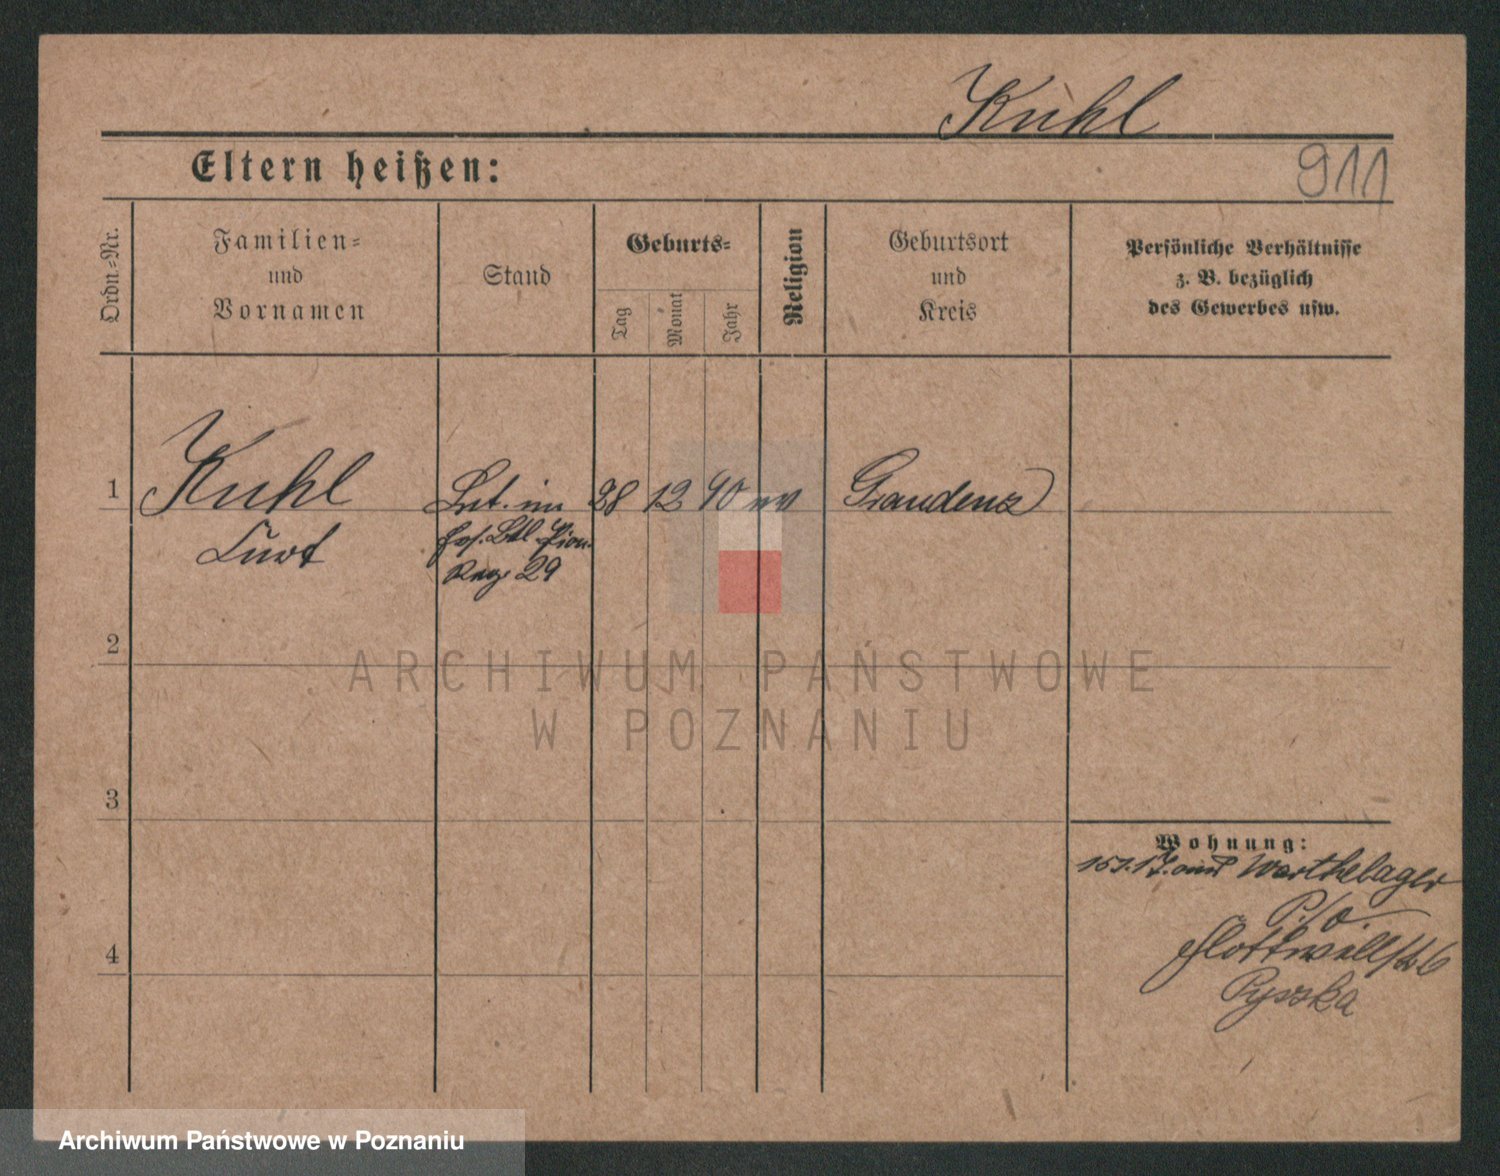 Kuhl
911
Eltern heißen:
Ordn.=Nr.
Familien=
und
Vornamen
Stand
Geburts=
Tag
Monat
Jahr
Religion
Geburtsort
und
Kreis
Persönliche Verhältnisse
z. B. bezüglich
des Gewerbes usw.
1
Kuhl
Curt
Lnt. im
Ers. Btl. Pion.
Reg. 29
28 12 90 ev
Graudenz
2
3
4
Wohnung:
15.1.17. Warthelager
P./O.
Flottwellstr 6
Pyszka
ARCHIWUM PAŃSTWOWE
W POZNANIU
Archiwum Państwowe w Poznaniu